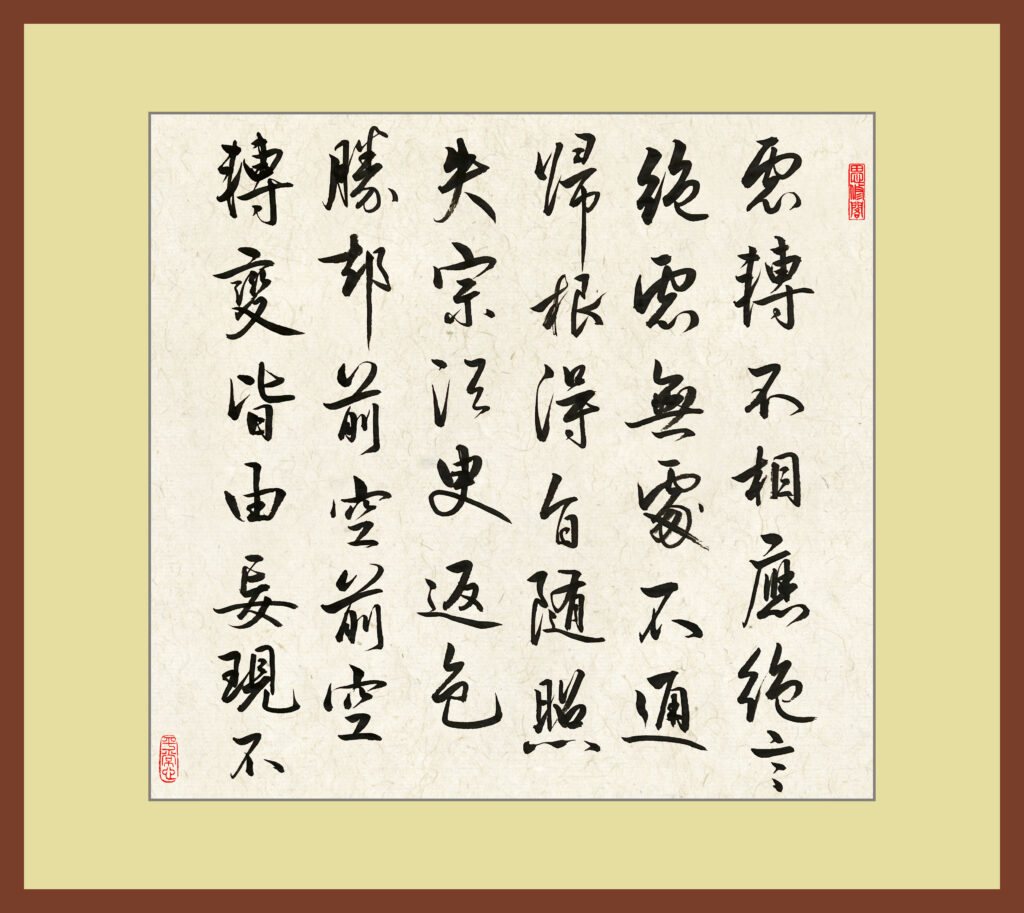 思修閣
慮轉不相應絕言
絕慮無處不通
歸根得旨隨照
失宗須臾返色
勝却前空前空
轉變皆由妄現不
平常心